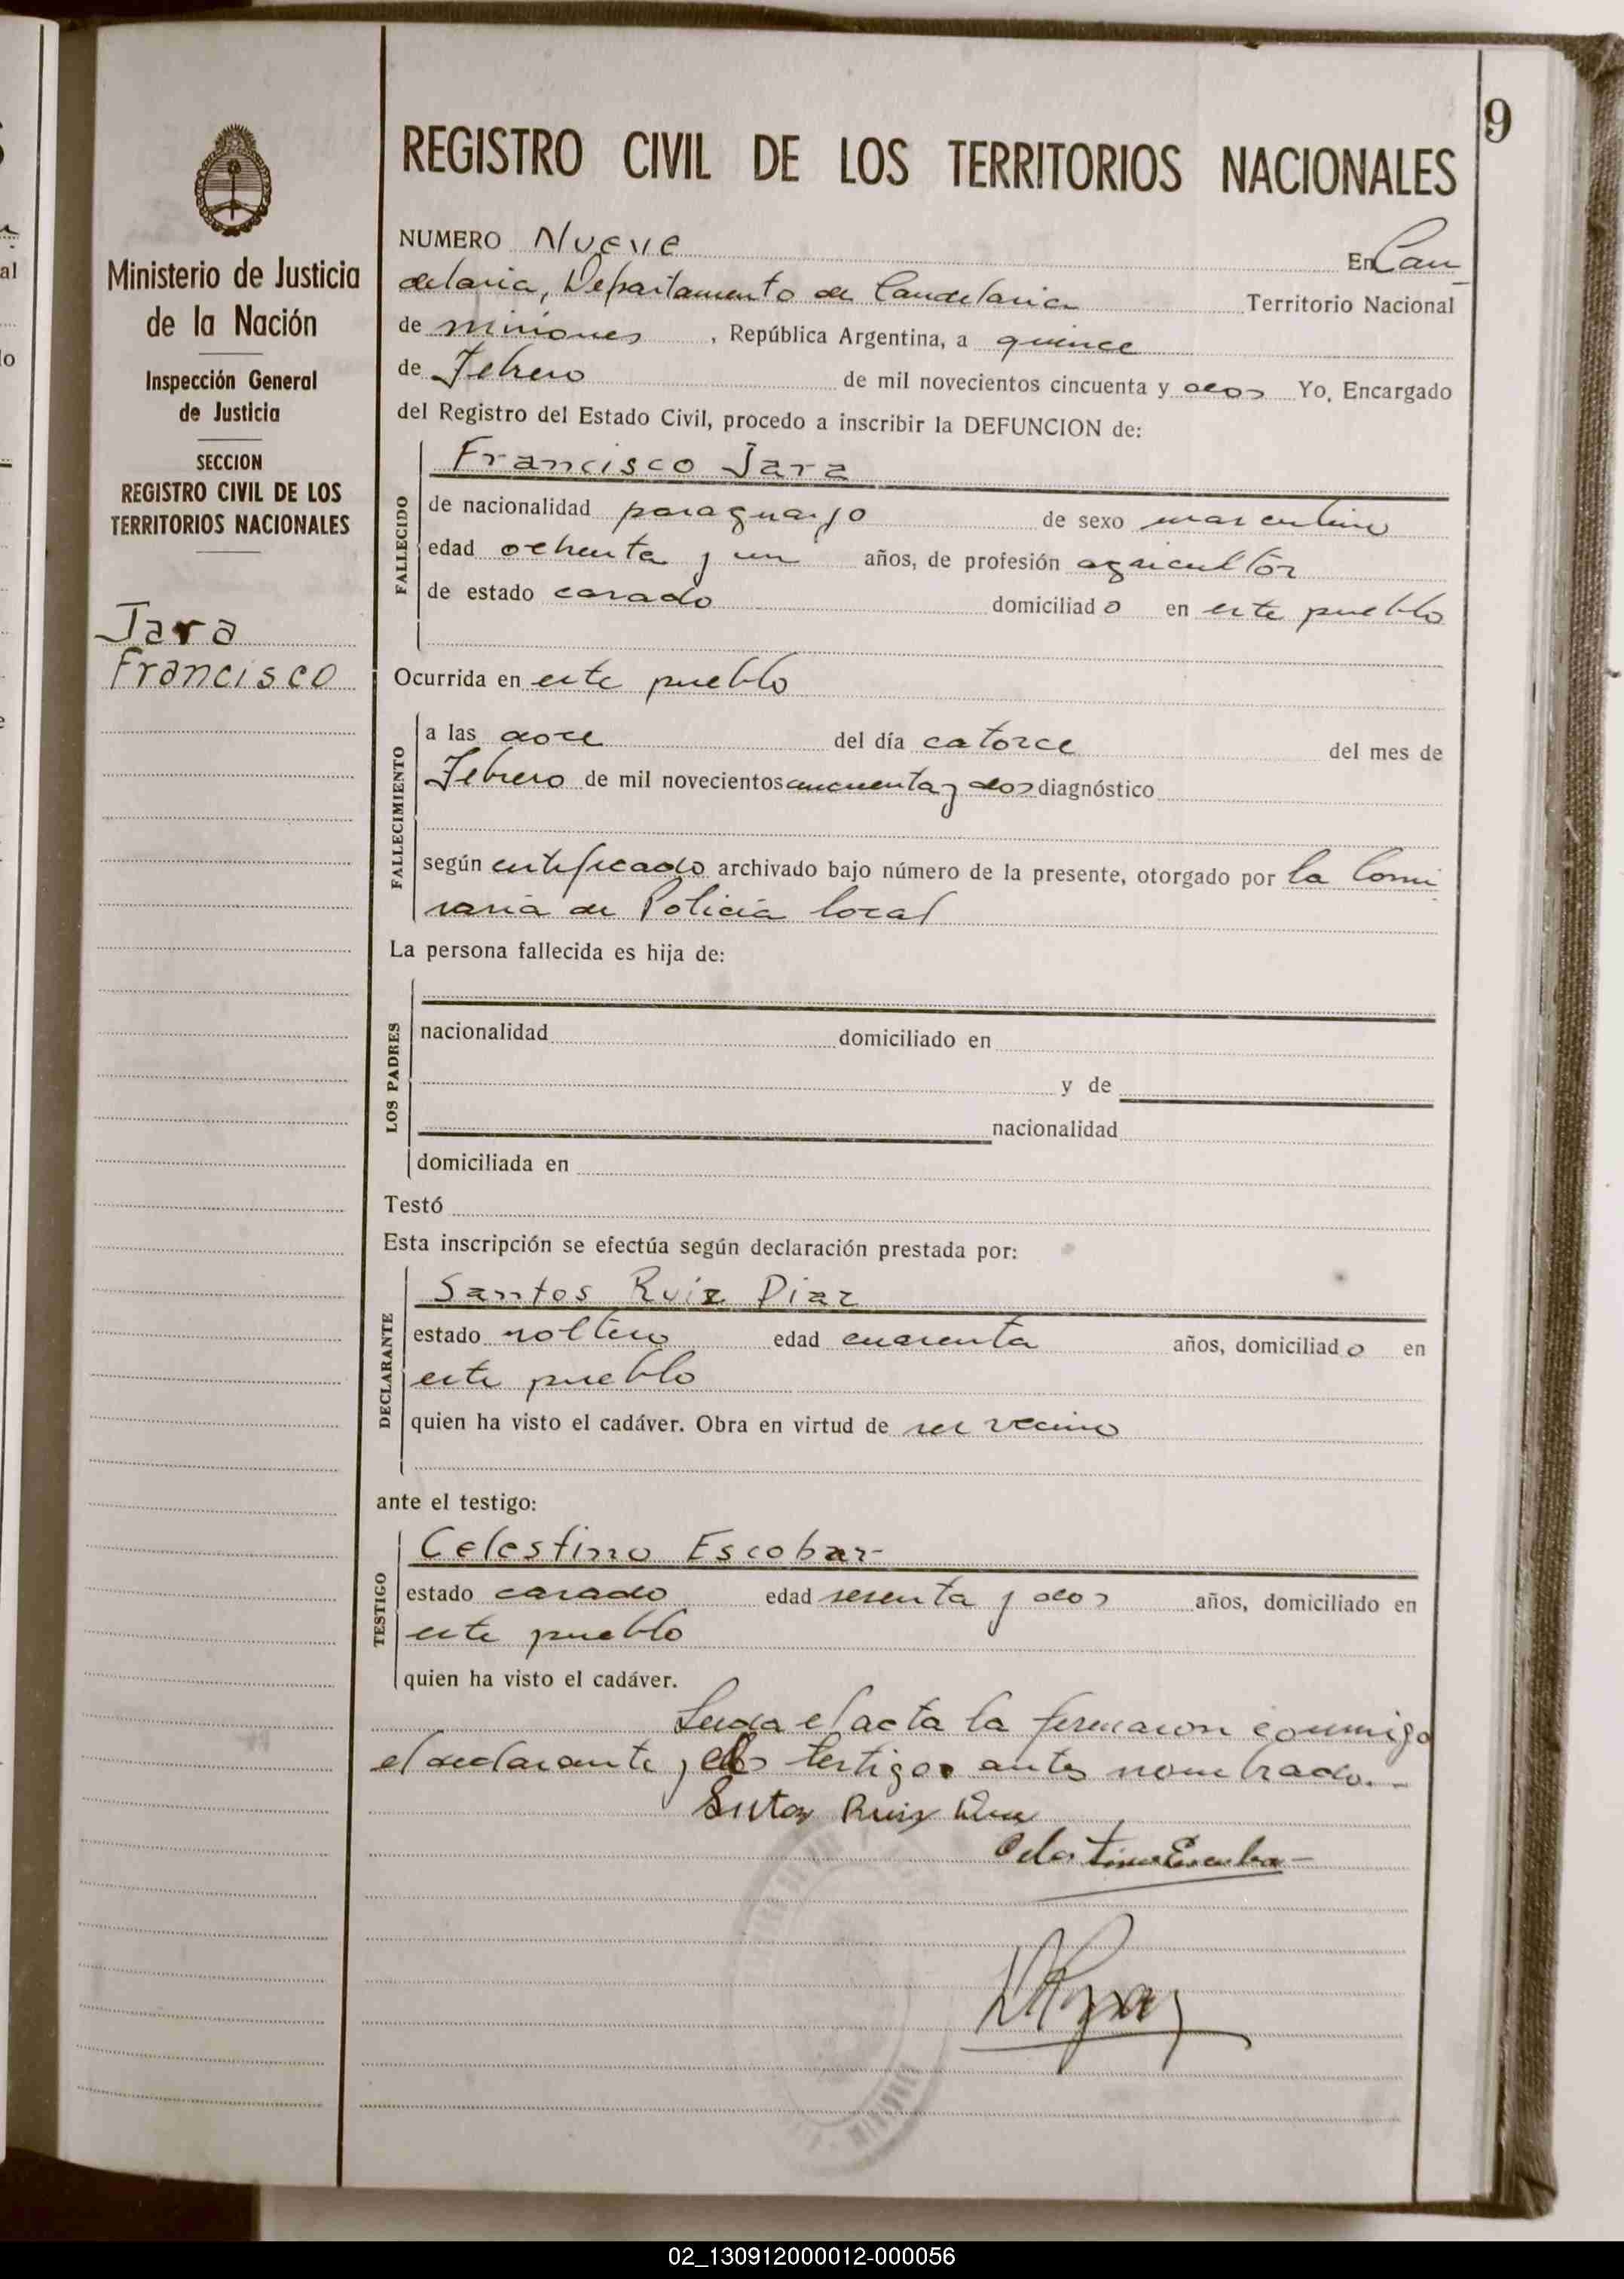 9
REGISTRO CIVIL DE LOS TERRITORIOS NACIONALES
Ministerio de Justicia
de la Nación
Inspección General
de Justicia
SECCION
REGISTRO CIVIL DE LOS
TERRITORIOS NACIONALES
Jara
Francisco
NUMERO Nueve En Can
delaria, Departamento de Candelaria Territorio Nacional
de misiones, República Argentina, a quince
de Febrero de mil novecientos cincuenta y dos Yo, Encargado
del Registro del Estado Civil, procedo a inscribir la DEFUNCION de:
FALLECIDO
Francisco Jara
de nacionalidad paraguayo de sexo masculino
edad ochenta y un años, de profesión agricultor
de estado casado domiciliado en este pueblo
Ocurrida en este pueblo
FALLECIMIENTO
a las doce del día catorce del mes de
Febrero de mil novecientos cincuenta y dos diagnóstico
según certificado archivado bajo número de la presente, otorgado por la Comi
saria de Policia local
La persona fallecida es hija de:
LOS PADRES
nacionalidad domiciliado en
y de
nacionalidad
domiciliada en
Testó
Esta inscripción se efectúa según declaración prestada por:
DECLARANTE
Santos Ruiz Diaz
estado soltero edad cuarenta años, domiciliado en
este pueblo
quien ha visto el cadáver. Obra en virtud de ser vecino
ante el testigo:
TESTIGO
Celestino Escobar
estado casado edad sesenta y dos años, domiciliado en
este pueblo
quien ha visto el cadáver.
Leida el acta la firmaron conmigo
el declarante y el testigo antes nombrado.-
Ruiz
02_130912000012-000056